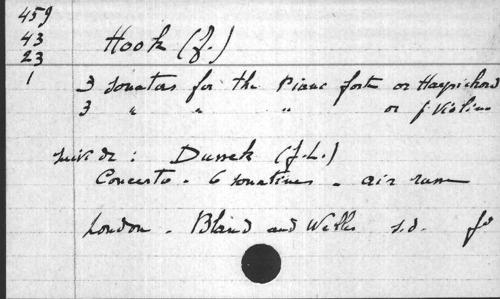 459
43
23
1
Hook (J.)
3 Sonatas for the Piano forte or Harpsichord
3 " " " or f. Violin
suivi de : Dussek (J.L.)
Concerto - 6 sonatines - air russe
London - Bland and Weller s.d. fo